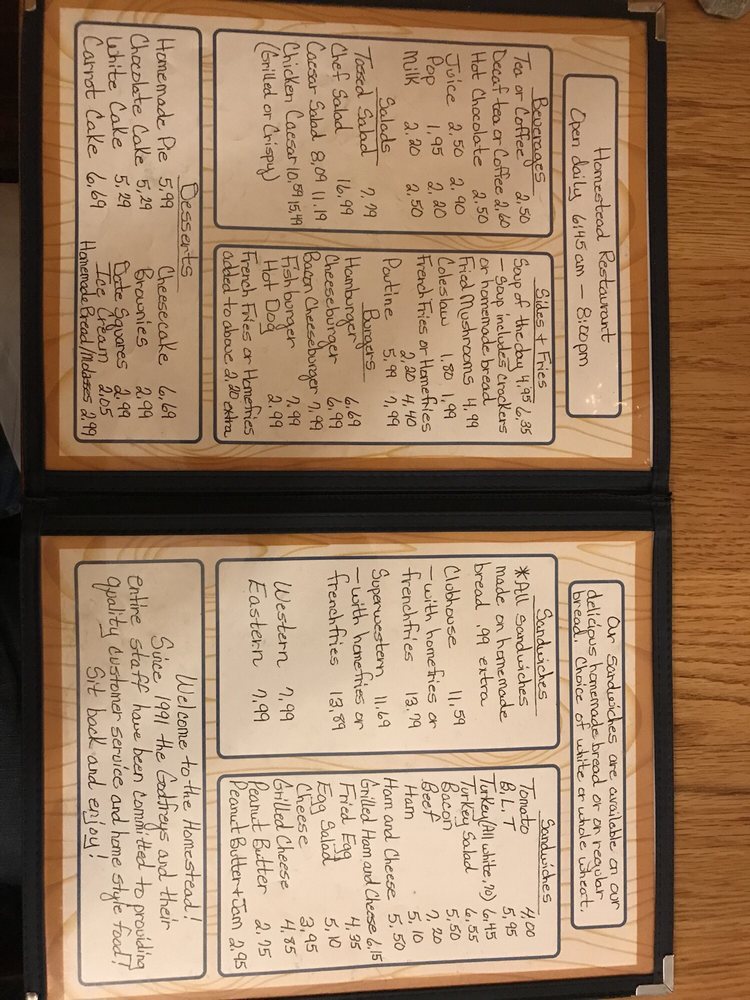 Homestead Restaurant
Open daily 6:45 am – 8:00 pm
Beverages
Tea or Coffee 2.50
Decaf tea or Coffee 2.60
Hot Chocolate 2.50
Juice 2.50 2.90
Pop 1.95 2.20
Milk 2.20 2.50
Salads
Tossed Salad 7.79
Chef Salad 16.99
Caesar Salad 8.09 11.19
Chicken Caesar 10.59 15.49
(Grilled or Crispy)
Sides + Fries
Soup of the day 4.95 6.35
– Soup includes crackers
or homemade bread
Fried Mushrooms 4.99
Coleslaw 1.80 1.99
French Fries or Homefries
2.20 4.40
Poutine 5.99 7.99
Burgers
Hamburger 6.69
Cheeseburger 6.99
Bacon Cheeseburger 7.99
Fishburger 7.99
Hot Dog 2.99
French Fries or Homefries
added to above 2.20 extra
Desserts
Homemade Pie 5.99
Chocolate Cake 5.29
White Cake 5.29
Carrot Cake 6.69
Cheesecake 6.69
Brownies 2.99
Date Squares 2.99
Ice Cream 2.05
Homemade Bread/Molasses 2.99
Our sandwiches are available on our
delicious homemade bread or on regular
bread. Choice of white or whole wheat.
Sandwiches
*All sandwiches
made on homemade
bread .99 extra
Clubhouse 11.59
– with homefries or
frenchfries 13.79
Superwestern 11.69
– with homefries or
frenchfries 13.89
Western 7.99
Eastern 7.99
Sandwiches
Tomato 4.00
B.L.T 5.95
Turkey (All white .70) 6.45
Turkey Salad 6.55
Bacon 5.50
Beef 7.20
Ham 5.10
Ham and Cheese 5.50
Grilled Ham and Cheese 6.15
Fried Egg 4.35
Egg Salad 5.10
Cheese 3.95
Grilled Cheese 4.85
Peanut Butter 2.75
Peanut Butter + Jam 2.95
Welcome to the Homestead!
Since 1991 the Godfreys and their
entire staff have been committed to providing
quality customer service and home style food!
Sit back and enjoy!